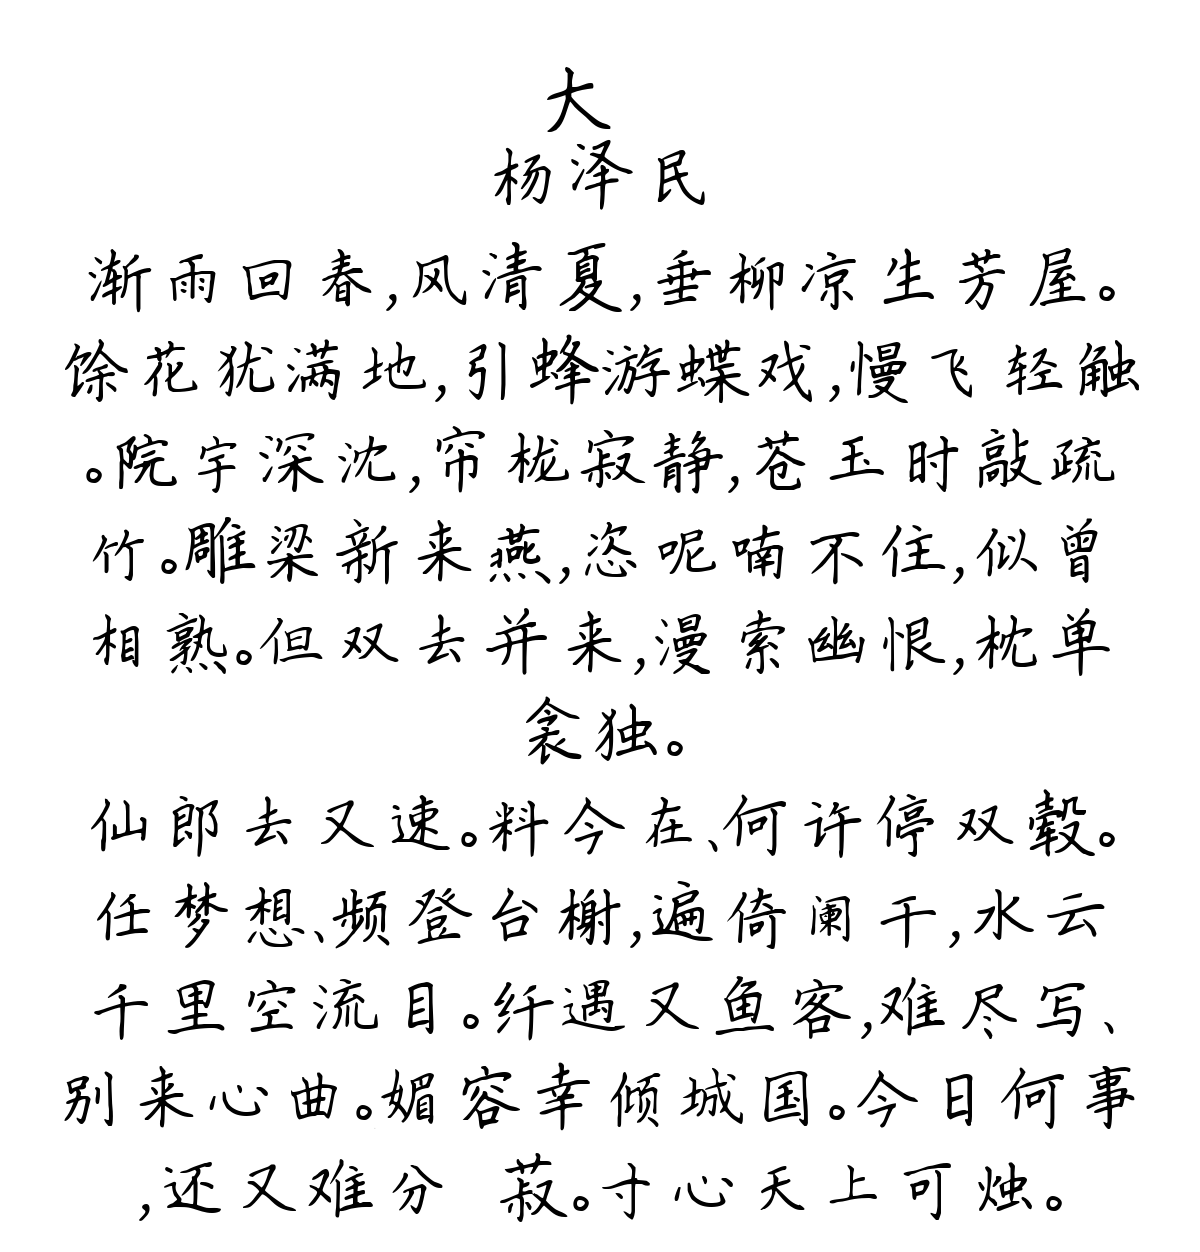 大
杨泽民
渐雨回春,风清夏,垂柳凉生芳屋。
馀花犹满地,引蜂游蝶戏,慢飞轻触
。院宇深沈,帘栊寂静,苍玉时敲疏
竹。雕梁新来燕,恣呢喃不住,似曾
相熟。但双去并来,漫萦幽恨,枕单
衾独。
仙郎去又速。料今在、何许停双毂。
任梦想、频登台榭,遍倚阑干,水云
千里空流目。纤遇又鱼客,难尽写、
别来心曲。媚容幸倾城国。今日何事
,还又难分 菽。寸心天上可烛。